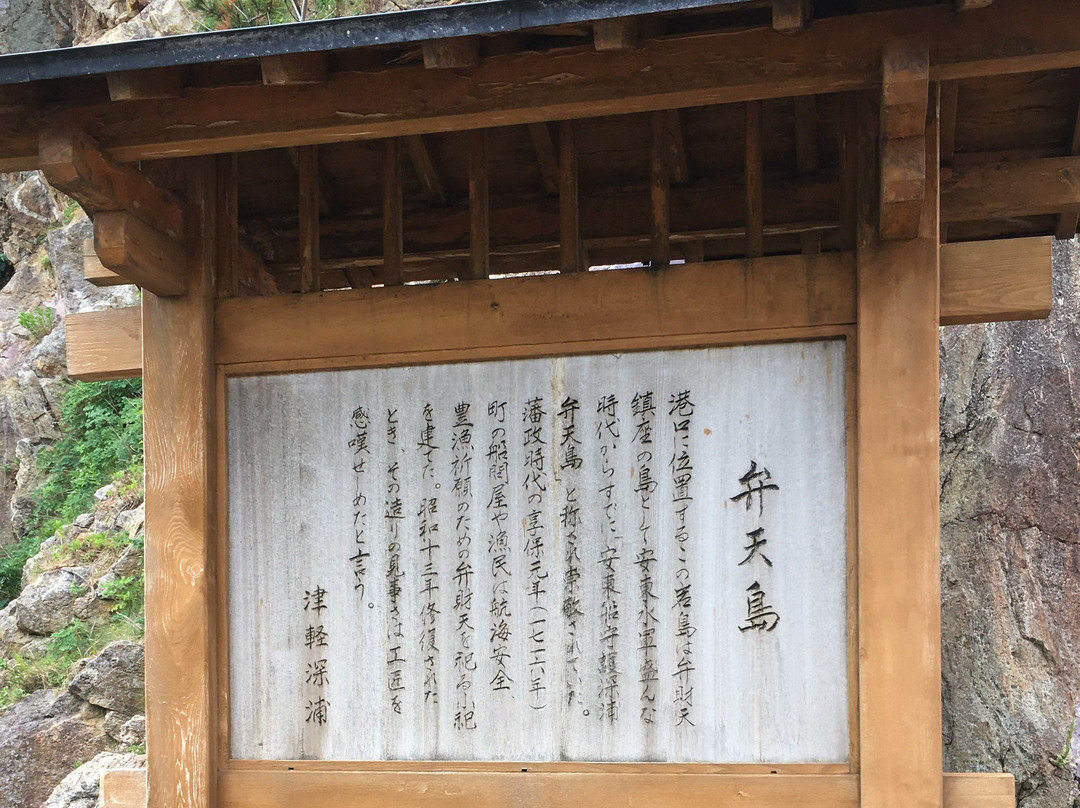 弁天島
港口に位置するこの岩島は弁財天
鎮座の島として安東水軍盛んな
時代からすでに「安東船守護深浦
弁天島」と称され崇敬されていた。
藩政時代の享保元年(一七一六年)
町の船問屋や漁民は航海安全
豊漁祈願のための弁財天を祀る小祀
を建てた。昭和十三年修復された
とき、その造りの見事さは工匠を
感嘆せしめたと言う。
津軽深浦